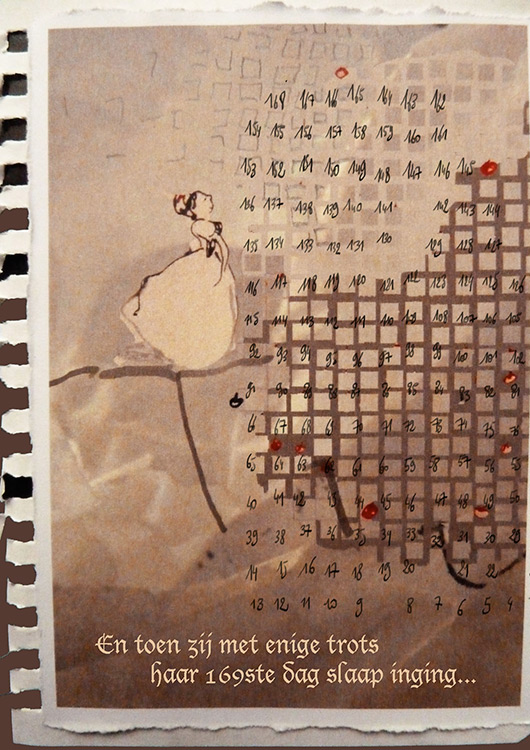 168 167 166 165 164 163 162
154 155 156 157 158 159 160 161
153 152 151 150 149 148 147 146 145
136 137 138 139 140 141 142 143 144
135 134 133 132 131 130 129 128 127
116 117 118 119 120 121 122 123 124 125 126
115 114 113 112 111 110 109 108 107 106 105
92 93 94 95 96 97 98 99 100 101 102
91 90 89 88 87 86 85 84 83 82 81
66 67 68 69 70 71 72 73 74 75 76
65 64 63 62 61 60 59 58 57 56 55
40 41 42 43 44 45 46 47 48 49 50
39 38 37 36 35 34 33 32 31 30 29
14 15 16 17 18 19 20 21 22
13 12 11 10 9 8 7 6 5 4
En toen zij met enige trots
haar 169ste dag slaap inging...